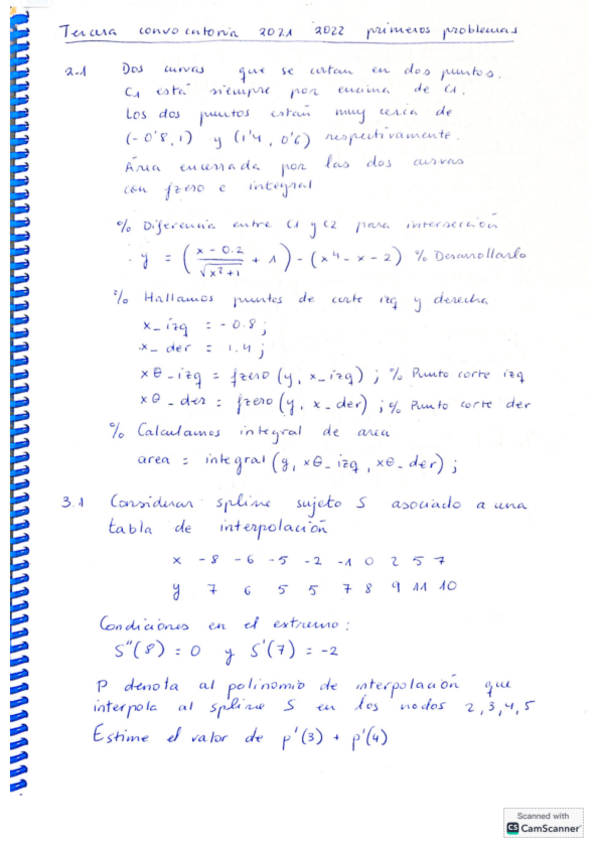 Tercera convocatoria 2021 2022 primeros problemas
2.1 Dos curvas que se cortan en dos puntos.
C1 está siempre por encima de C1.
Los dos puntos están muy cerca de
(-0'8, 1) y (1'4, 0'6) respectivamente.
Área encerrada por las dos curvas
con fzero e integral
% Diferencia entre C1 y C2 para intersección
y = ( (x - 0.2)/√(x²+1) + 1 ) - (x⁴ - x - 2) % Desarrollarlo
% Hallamos puntos de corte izq y derecha
x_izq = -0.8;
x_der = 1.4;
x0_izq = fzero(y, x_izq); % Punto corte izq
x0_der = fzero(y, x_der); % Punto corte der
% Calculamos integral de area
area = integral(y, x0_izq, x0_der);
3.1 Considerar spline sujeto S asociado a una
tabla de interpolación
x -8 -6 -5 -2 -1 0 2 5 7
y 7 6 5 5 7 8 9 11 10
Condiciones en el extremo:
S''(8) = 0 y S'(7) = -2
P denota al polinomio de interpolación que
interpola al spline S en los nodos 2,3,4,5
Estime el valor de p'(3) + p'(4)
Scanned with
CS CamScanner